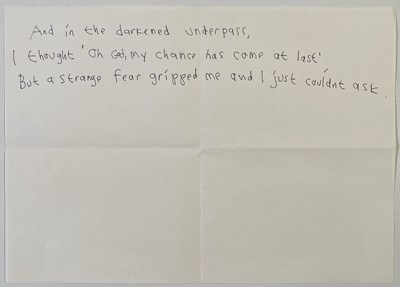 And in the darkened underpass,
I thought 'Oh God, my chance has come at last'
But a strange fear gripped me and I just couldnt ask.